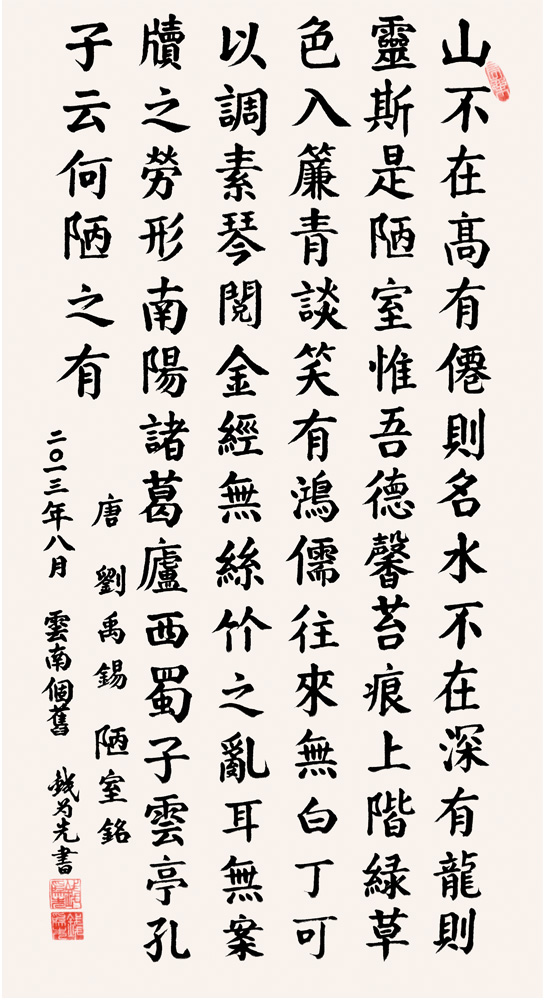 山不在高有僊則名水不在深有龍則
靈斯是陋室惟吾德馨苔痕上階緑草
色入簾青談笑有鴻儒往來無白丁可
以調素琴閱金經無絲竹之亂耳無案
牘之勞形南陽諸葛廬西蜀子雲亭孔
子云何陋之有
唐 劉禹錫 陋室銘
二〇一三年八月 雲南個舊 钱为先書